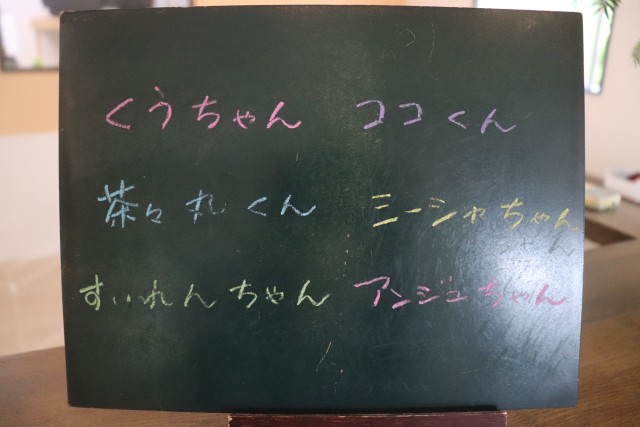 くうちゃん ココくん
茶々丸くん ミーシャちゃん
すいれんちゃん アンジュちゃん